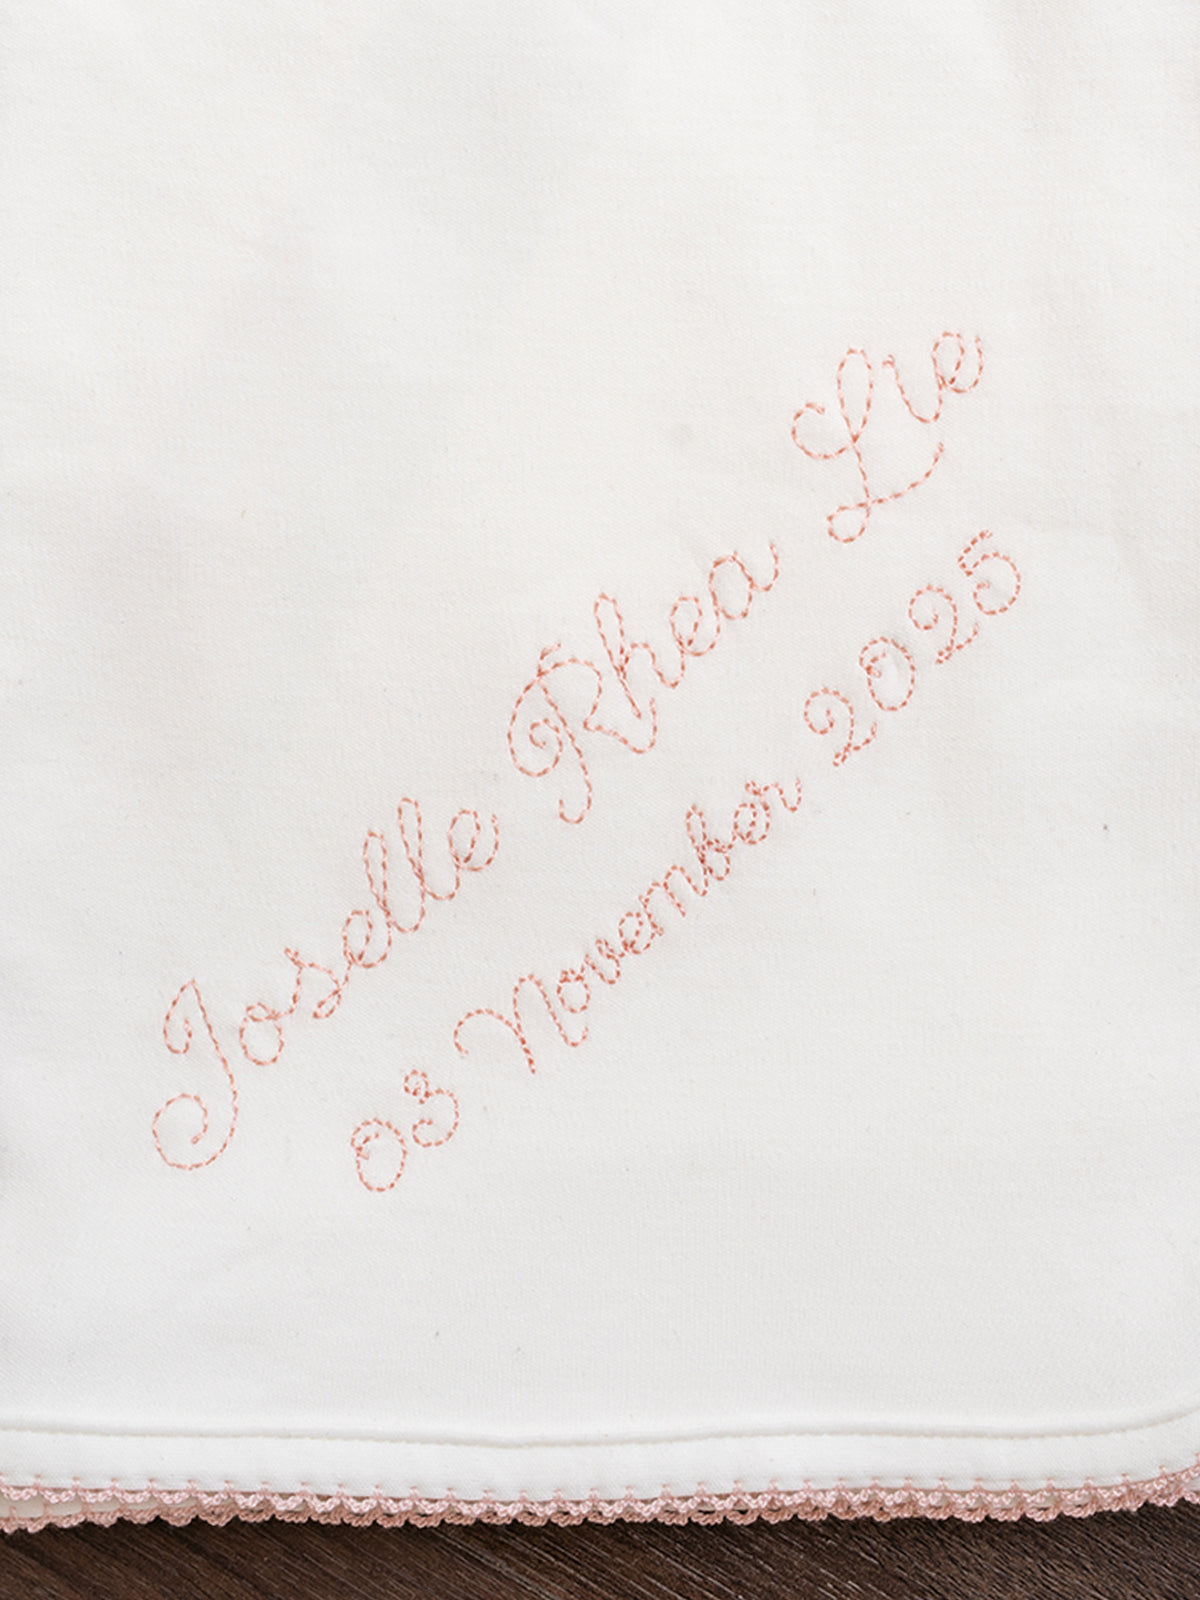 Joselle Rhea Lie
03 November 2025